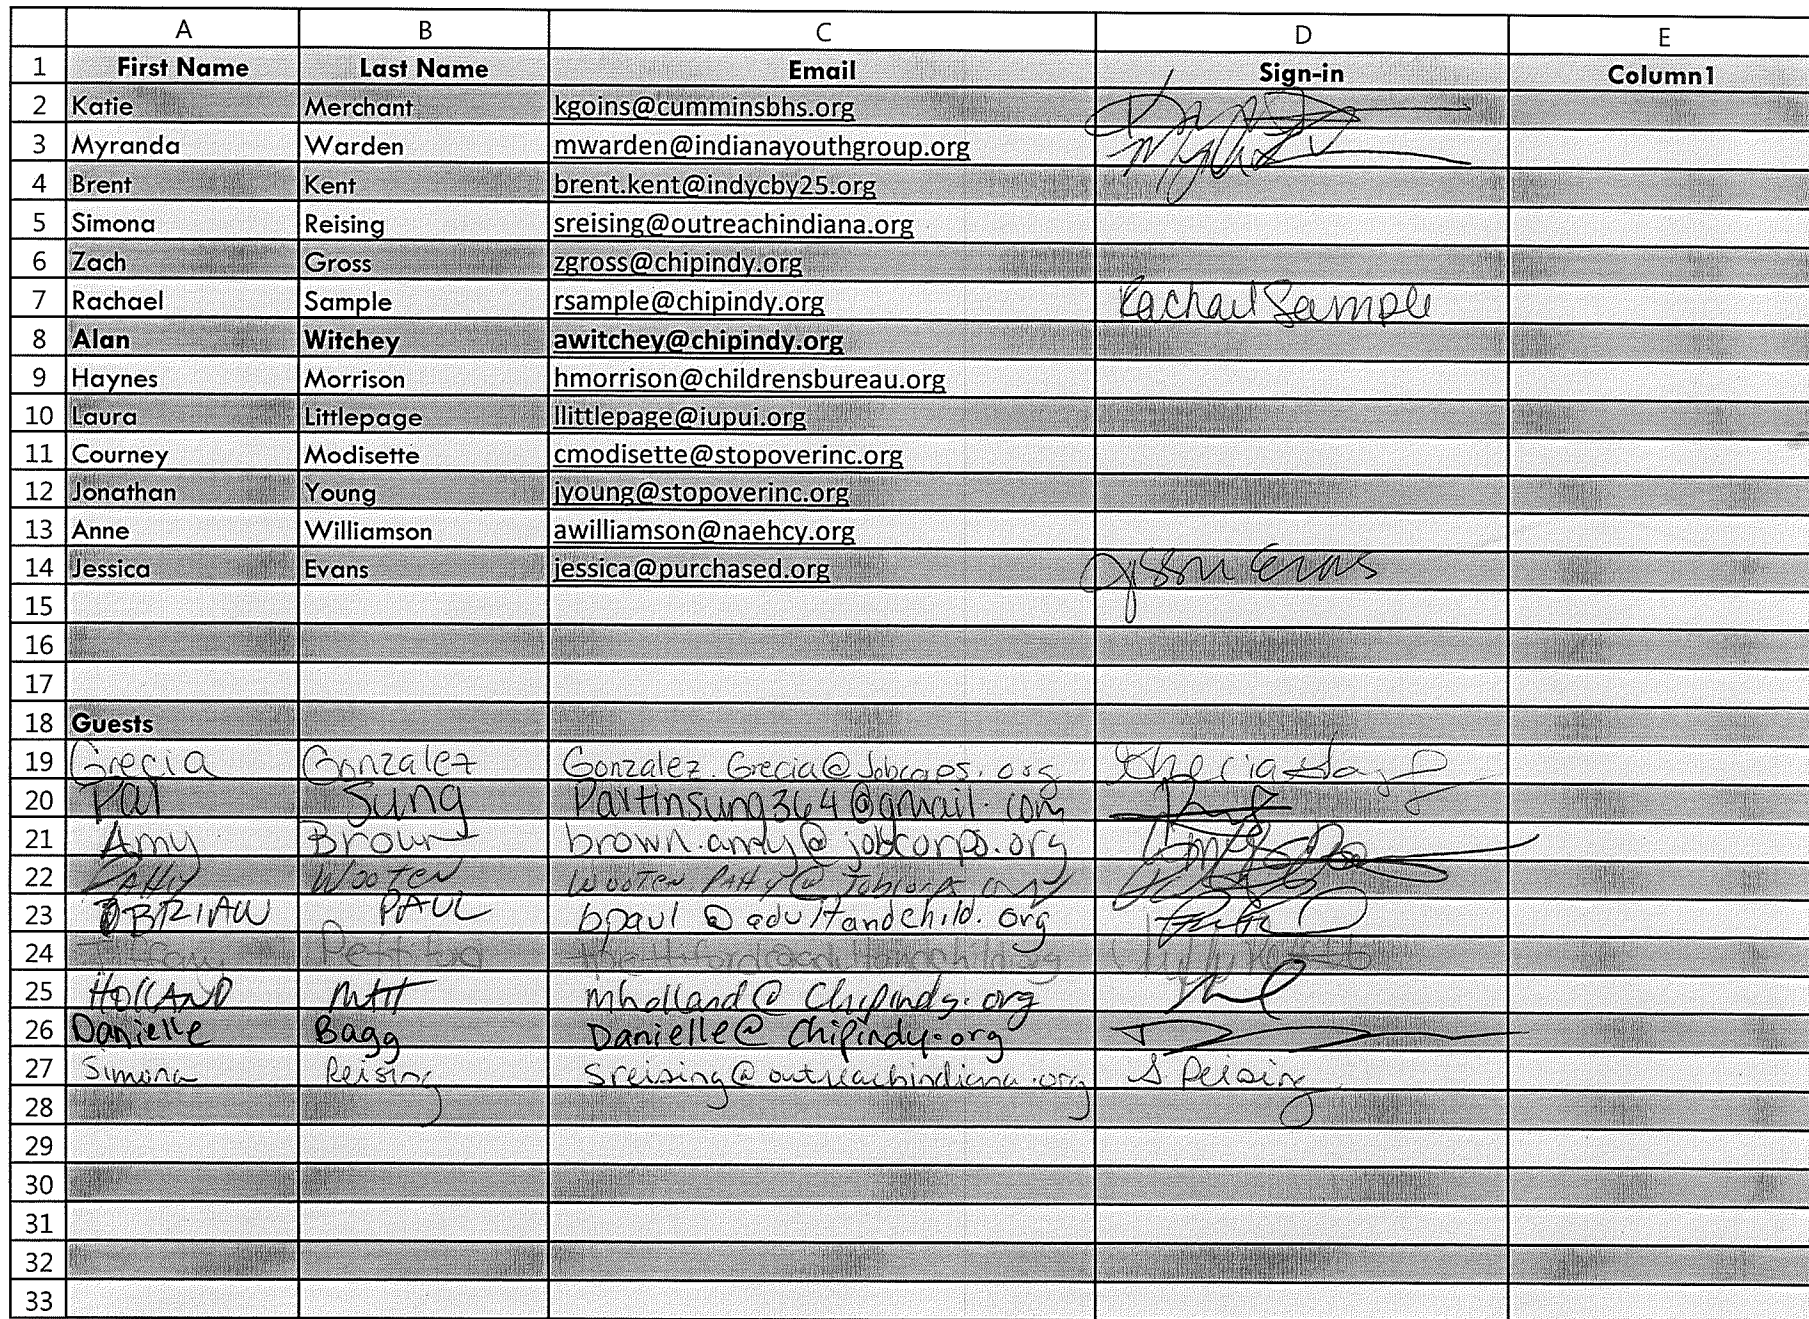 A B C D E
1 First Name Last Name Email Sign-in Column1
2 Katie Merchant kgoins@cumminsbhs.org
3 Myranda Warden mwarden@indianayouthgroup.org
4 Brent Kent brent.kent@indycby25.org
5 Simona Reising sreising@outreachindiana.org
6 Zach Gross zgross@chipindy.org
7 Rachael Sample rsample@chipindy.org Rachael Sample
8 Alan Witchey awitchey@chipindy.org
9 Haynes Morrison hmorrison@childrensbureau.org
10 Laura Littlepage llittlepage@iupui.org
11 Courney Modisette cmodisette@stopoverinc.org
12 Jonathan Young jyoung@stopoverinc.org
13 Anne Williamson awilliamson@naehcy.org
14 Jessica Evans jessica@purchased.org
15
16
17
18 Guests
19 Grecia Gonzalez Gonzalez.Grecia@Jobcorps.org
20 Pal Sung
21 Amy Brown
22 Patty Wooten
23 BRIAN PAUL bpaul@adultandchild.org
24
25 HOLLAND Matt mholland@Chipindy.org
26 Danielle Bagg Danielle@Chipindy.org
27 Simona Reising Sreising@outreachindiana.org S Reising
28
29
30
31
32
33